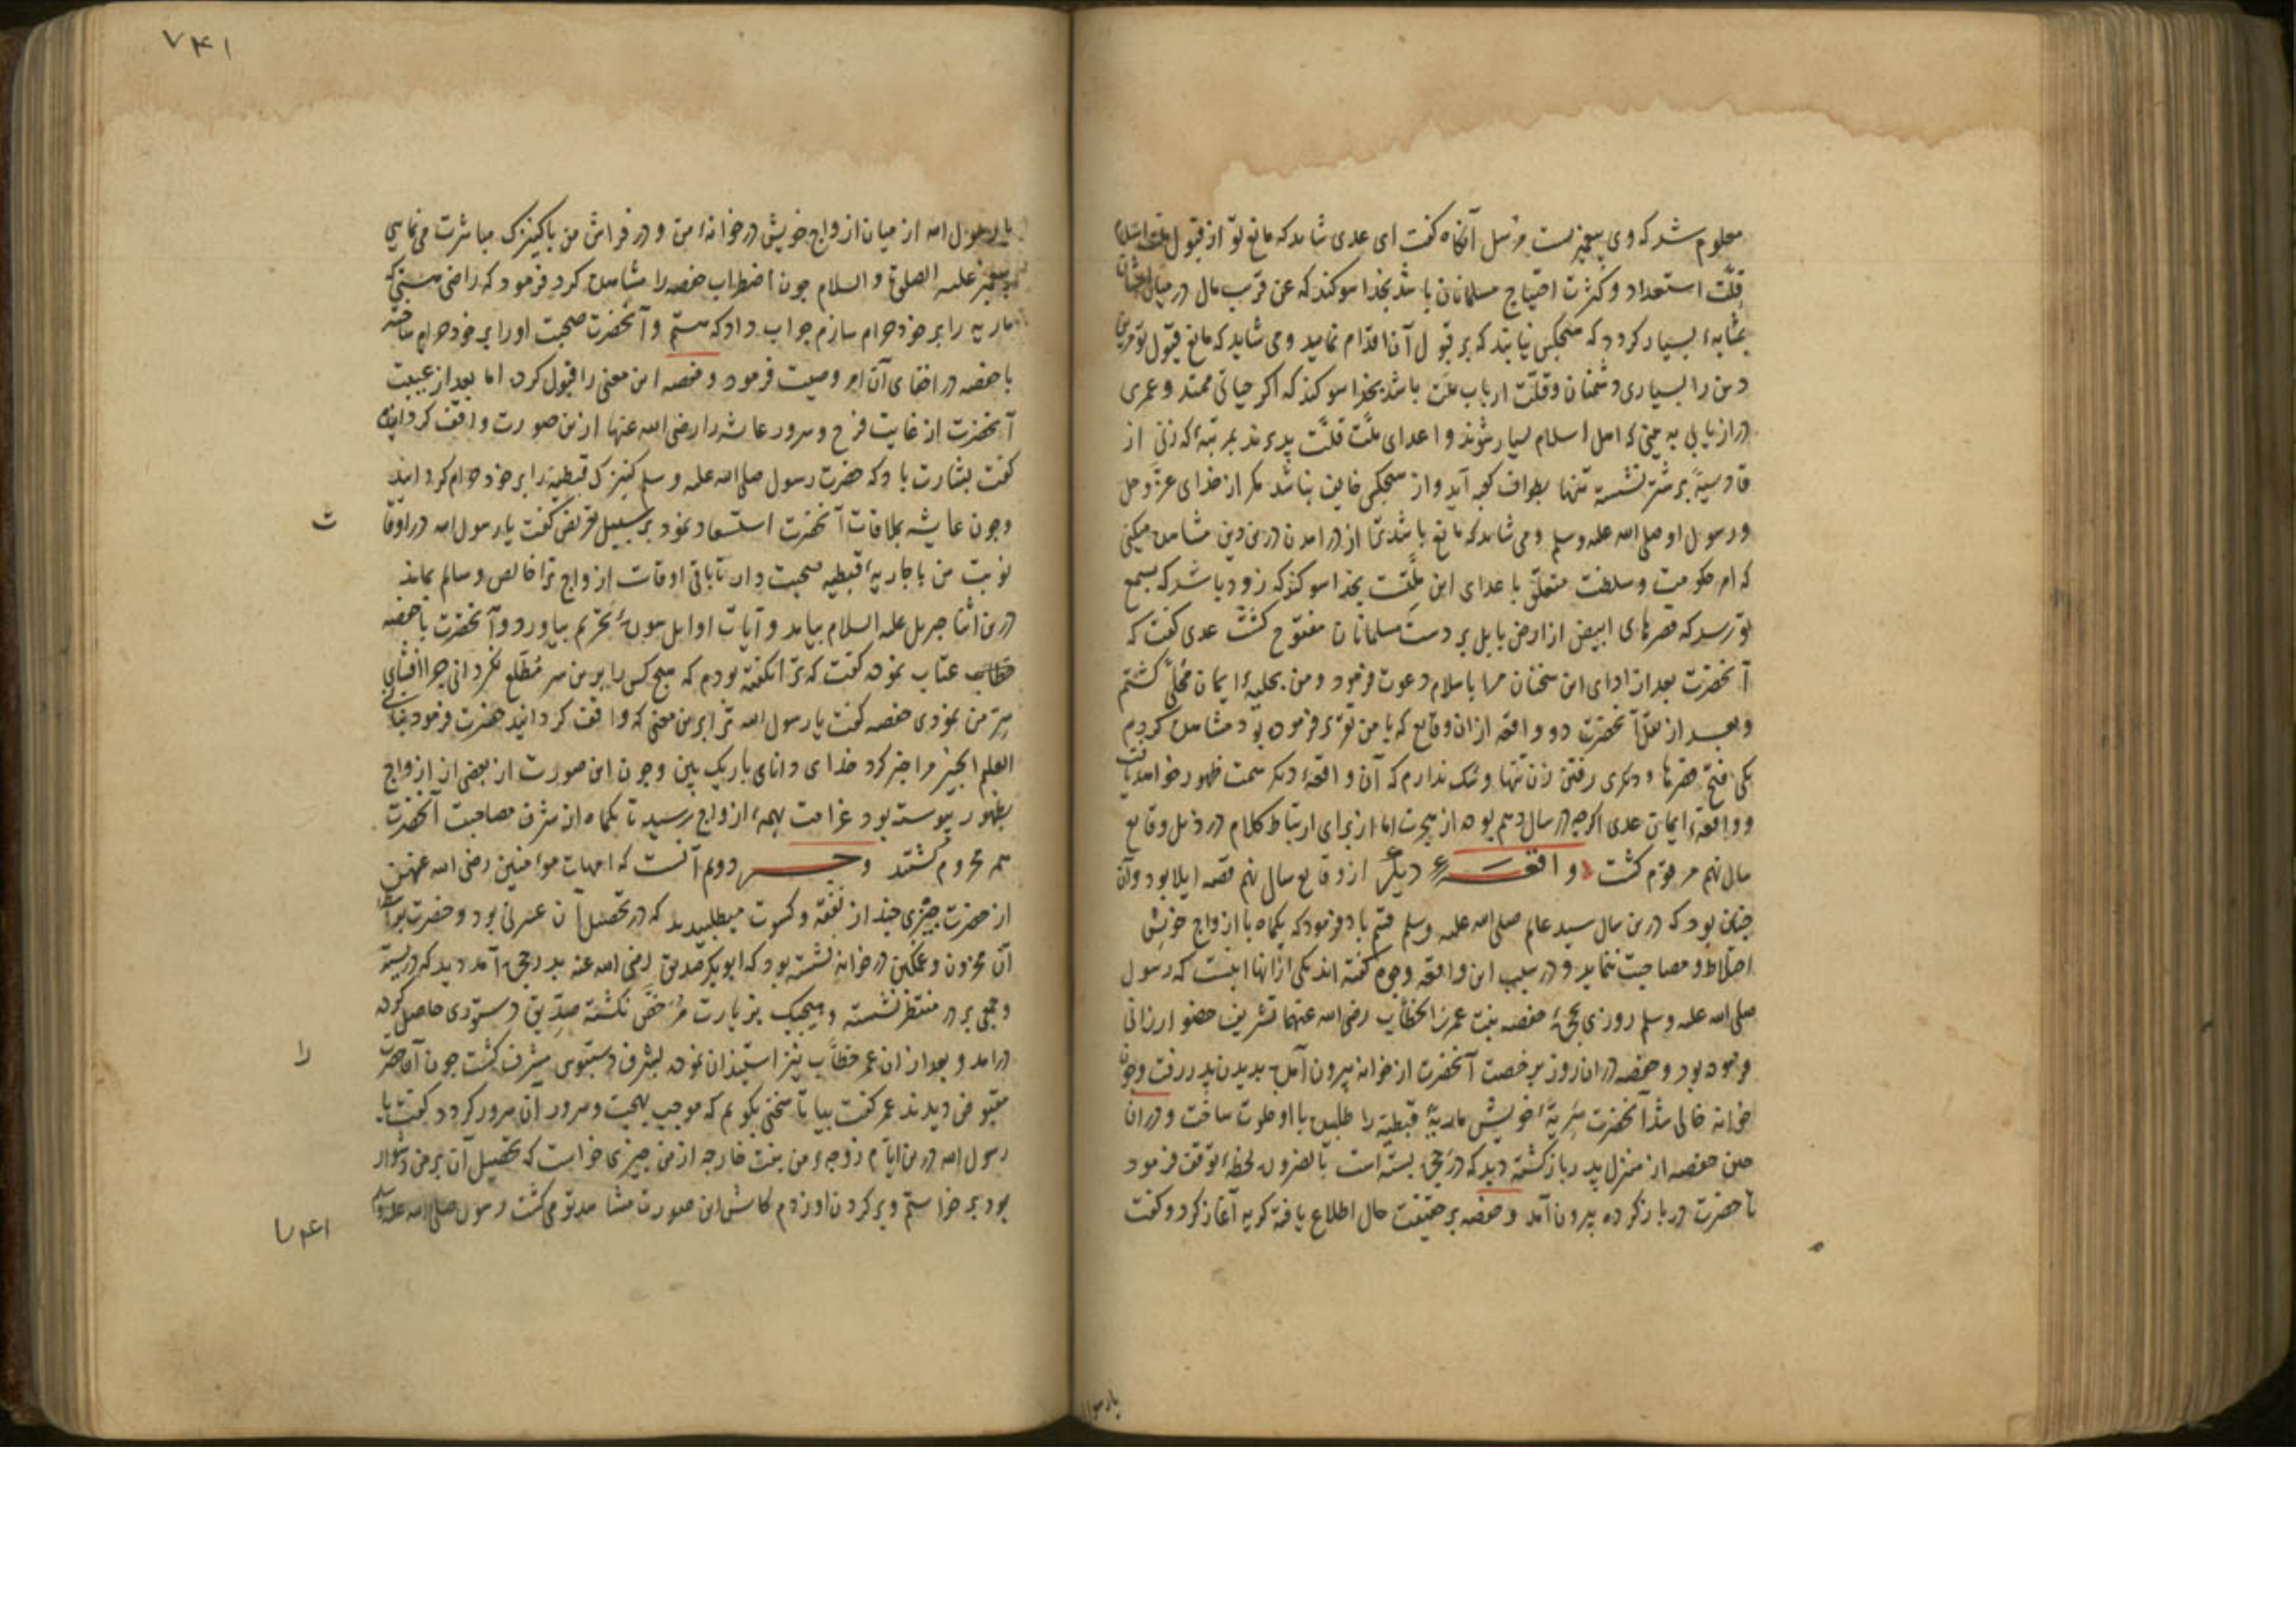 معلوم شد که وی پیغمبریست مرسل آنگاه کفت ای عدی شاید که مانع تو از قبول ملت اسلام
قلت استعداد و کثرت احتیاج مسلمانان باشد بخدا سوکند که عن قرب مال در میان ایشان
بمثابهٔ بسیار کردد که هیچکس نیابند که بر قبول آن اقدام نماید و می شاید که مانع قبول تو مرین
دین را بسیاری دشمنان و قلت ارباب ملت باشد بخدا سوکند که اکر حیاتی ممتد و عمری
دراز یابی به بینی که اهل اسلام بسیار شوند و اعدای ملت قلت پذیرند بمرتبهٔ که زنی از
قادسیه بر شتر نشسته تنها بطواف کعبه آید و از هیچکس خایف نباشد مکر از خدای عز و جل
و رسول او صلی الله علیه و سلم و می شاید که مانع باشد ترا از درامدن درین دین مشاهده میکنی
که امر حکومت و سلطنت متعلق باعدای این ملتست بخدا سوکند که زود باشد که بسمع
تو رسد که قصرهای ابیض از ارض بابل بر دست مسلمانان مفتوح کشت عدی کفت که
آنحضرت بعد از ادای این سخنان مرا باسلام دعوت فرمود و من بحلیهٔ ایمان محلی کشتم
و بعد از نقل آنحضرت دو واقعه ازان وقایع که با من تقریر فرموده بود مشاهده کردم
یکی فتح قصرها و دیکری رفتن زن تنها و شک ندارم که آن واقعهٔ دیکر سمت ظهور خواهد یافت
و واقعهٔ ایمان عدی اکرچه در سال دهم بوده از هجرت اما از برای ارتباط کلام در ذیل وقایع
سال نهم مرقوم کشت و اقعهٔ دیکر از وقایع سال نهم قصه ایلا بود و آن
چنان بود که درین سال سید عالم صلی الله علیه و سلم قسم یاد فرمود که یکماه با ازواج خویش
اختلاط و مصاحبت ننماید و در سبب این واقعه وجوه کفته اند یکی ازانها اینست که رسول
صلی الله علیه و سلم روزی بحجرهٔ حفصه بنت عمر بن الخطاب رضی الله عنهما تشریف حضور ارزانی
فرموده بود و حفصه دران روز برخصت آنحضرت از خانه بیرون آمده بدیدن پدر رفت و چون
خانه خالی شد آنحضرت سریهٔ خویش ماریهٔ قبطیه را طلبیده با او خلوت ساخت و دران
حین حفصه از منزل پدر باز کشته دید که در حجره بسته است بالضروره لحظهٔ توقف فرمود
تا حضرت در باز کرده بیرون آمد و حفصه بر حقیقت حال اطلاع یافته کریه آغاز کرد و کفت
یا رسول
۷۴۱
یا رسول الله از میان ازواج خویش در خانهٔ من و در فراش من با کنیزک مباشرت می نمایی
پیغمبر علیه الصلوة و السلام چون اضطراب حفصه را مشاهده کرد فرمود که راضی هستی که
ماریه را بر خود حرام سازم جواب داد که هستم و آنحضرت صحبت او را بر خود حرام ساخته
با حفصه در اخفای آن امر وصیت فرمود و حفصه این معنی را قبول کرد اما بعد از غیبت
آنحضرت از غایت فرح و سرور عایشه را رضی الله عنها ازین صورت واقف کردانیده
کفت بشارت باد که حضرت رسول صلی الله علیه و سلم کنیزک قبطیه را بر خود حرام کردانید
و چون عایشه بملاقات آنحضرت استسعاد نمود بر سبیل تعریض کفت یا رسول الله در اوقا
ت
نوبت من با جاریهٔ قبطیه صحبت دار تا باقی اوقات ازواج ترا خالص و سالم بماند
درین اثنا جبریل علیه السلام بیامد و آیات اوایل سورهٔ تحریم بیاورد و آنحضرت با حفصه
خطاب عتاب نموده کفت که ترا نکفته بودم که هیچ کس را برین سر مطلع نکردانی چرا افشای
سر من نمودی حفصه کفت یا رسول الله ترا برین معنی که واقف کردانید حضرت فرمود نبأنی
العلیم الخبیر مرا خبر کرد خدای دانای باریک بین و چون این صورت از بعضی از ازواج
بظهور پیوسته بود غرامت بهمهٔ ازواج رسید تا یکماه از شرف مصاحبت آنحضرت
همه محروم کشتند و جه دویم آنست که امهات مؤمنین رضی الله عنهن
از حضرت چیزی چند از نفقه و کسوت میطلبیدند که در تحصیل آن عسرتی بود و حضرت بواسطه
آن محزون و غمکین در خانه نشسته بود که ابوبکر صدیق رضی الله عنه بدر حجره آمد دید که در بسته
و جمعی بر در منتظر نشسته و هیچیک بزیارت مرخص نکشته صدیق دستوری حاصل کرده
درامد و بعد ازان عمر خطاب نیز استیذان نموده بشرف دستبوس مشرف کشت چون آنحضرت
را
مقبوض دیدند عمر کفت بیا تا سخنی بکویم که موجب بهجت و سرور آن سرور کردد کفت یا
رسول الله درین ایام زوجهٔ من بنت خارجه از من چیزی خواست که تحصیل آن بر من دشوار
بود برخواستم و بر کردن او زدم کاش این صورت مشاهد تو می کشت رسول صلی الله علیه و سلم
۷۴۱